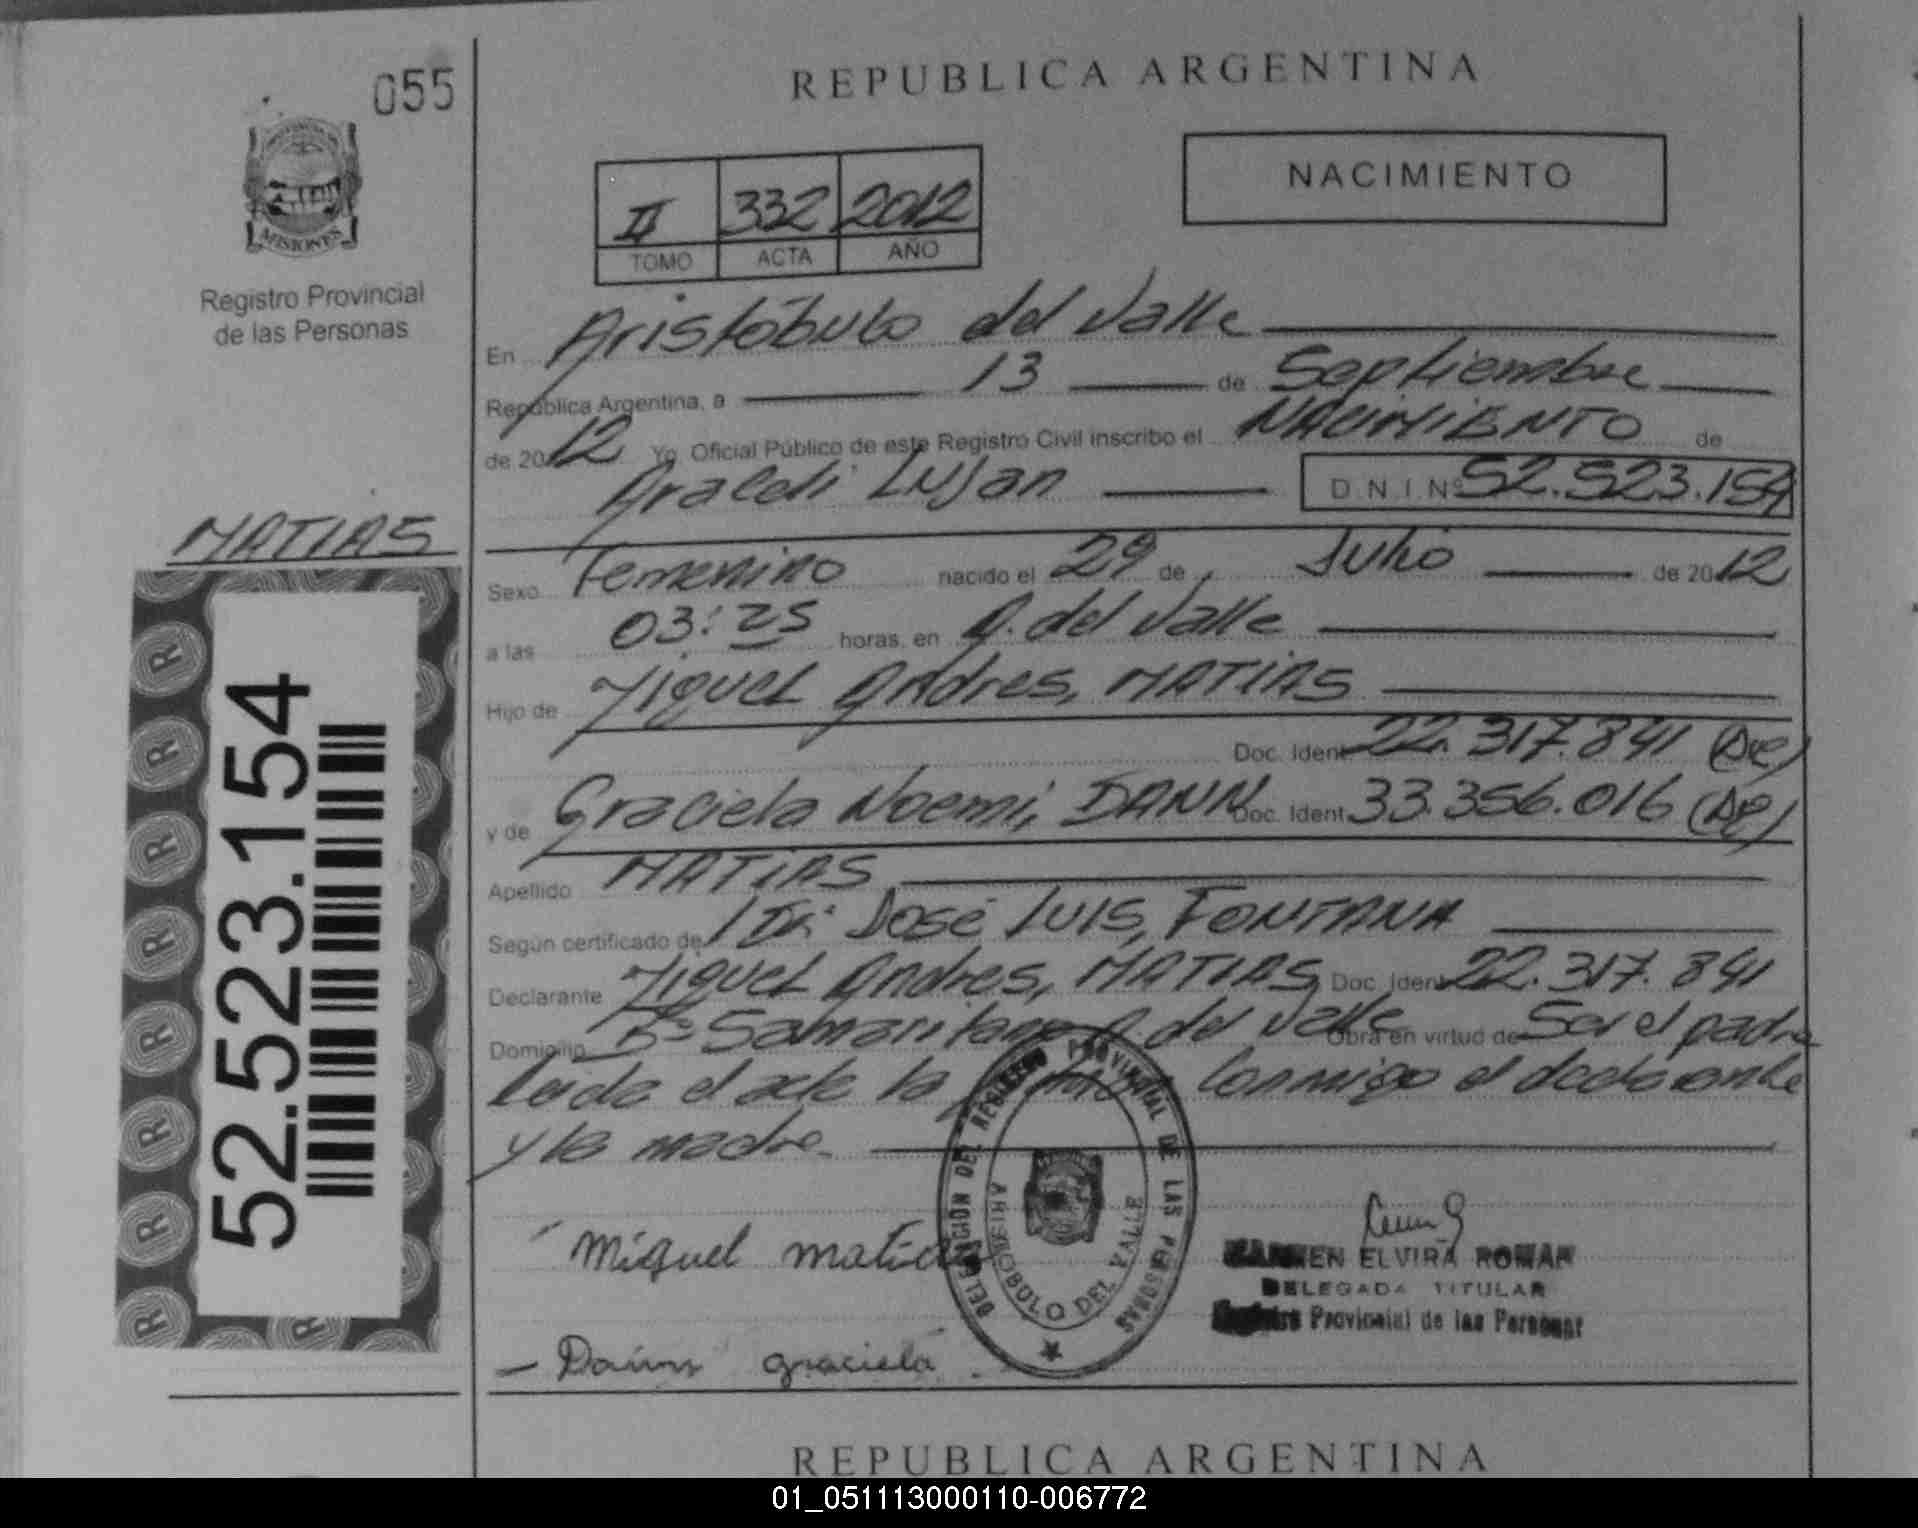 055
REPUBLICA ARGENTINA
NACIMIENTO
II 332 2012
TOMO ACTA AÑO
MISIONES
Registro Provincial
de las Personas
En Aristóbulo del Valle
República Argentina, a 13 de Septiembre
de 2012 Yo, Oficial Público de este Registro Civil inscribo el NACIMIENTO de
Araceli Lujan D.N.I Nº 52.523.154
MATIAS
Sexo Femenino nacido el 29 de Julio de 2012
a las 03:25 horas, en A. del Valle
Hijo de Miguel Andres, MATIAS
Doc. Ident. 22.317.841
y de Graciela Noemi, DANN Doc. Ident. 33.356.016
Apellido MATIAS
Según certificado de Dr. José Luis, FONTANA
Declarante Miguel Andres, MATIAS Doc. Ident. 22.317.841
Domicilio Bº Samaritano A. del Valle Obra en virtud de Ser el padre
Leida el acta la conmigo el declarante
y la madre.
52.523.154
Miguel matias
DELEGACION DEL REGISTRO PROVINCIAL DE LAS PERSONAS
ARISTOBULO DEL VALLE
CARMEN ELVIRA ROMAN
DELEGADA TITULAR
Registro Provincial de las Personas
graciela
REPUBLICA ARGENTINA
01_051113000110-006772